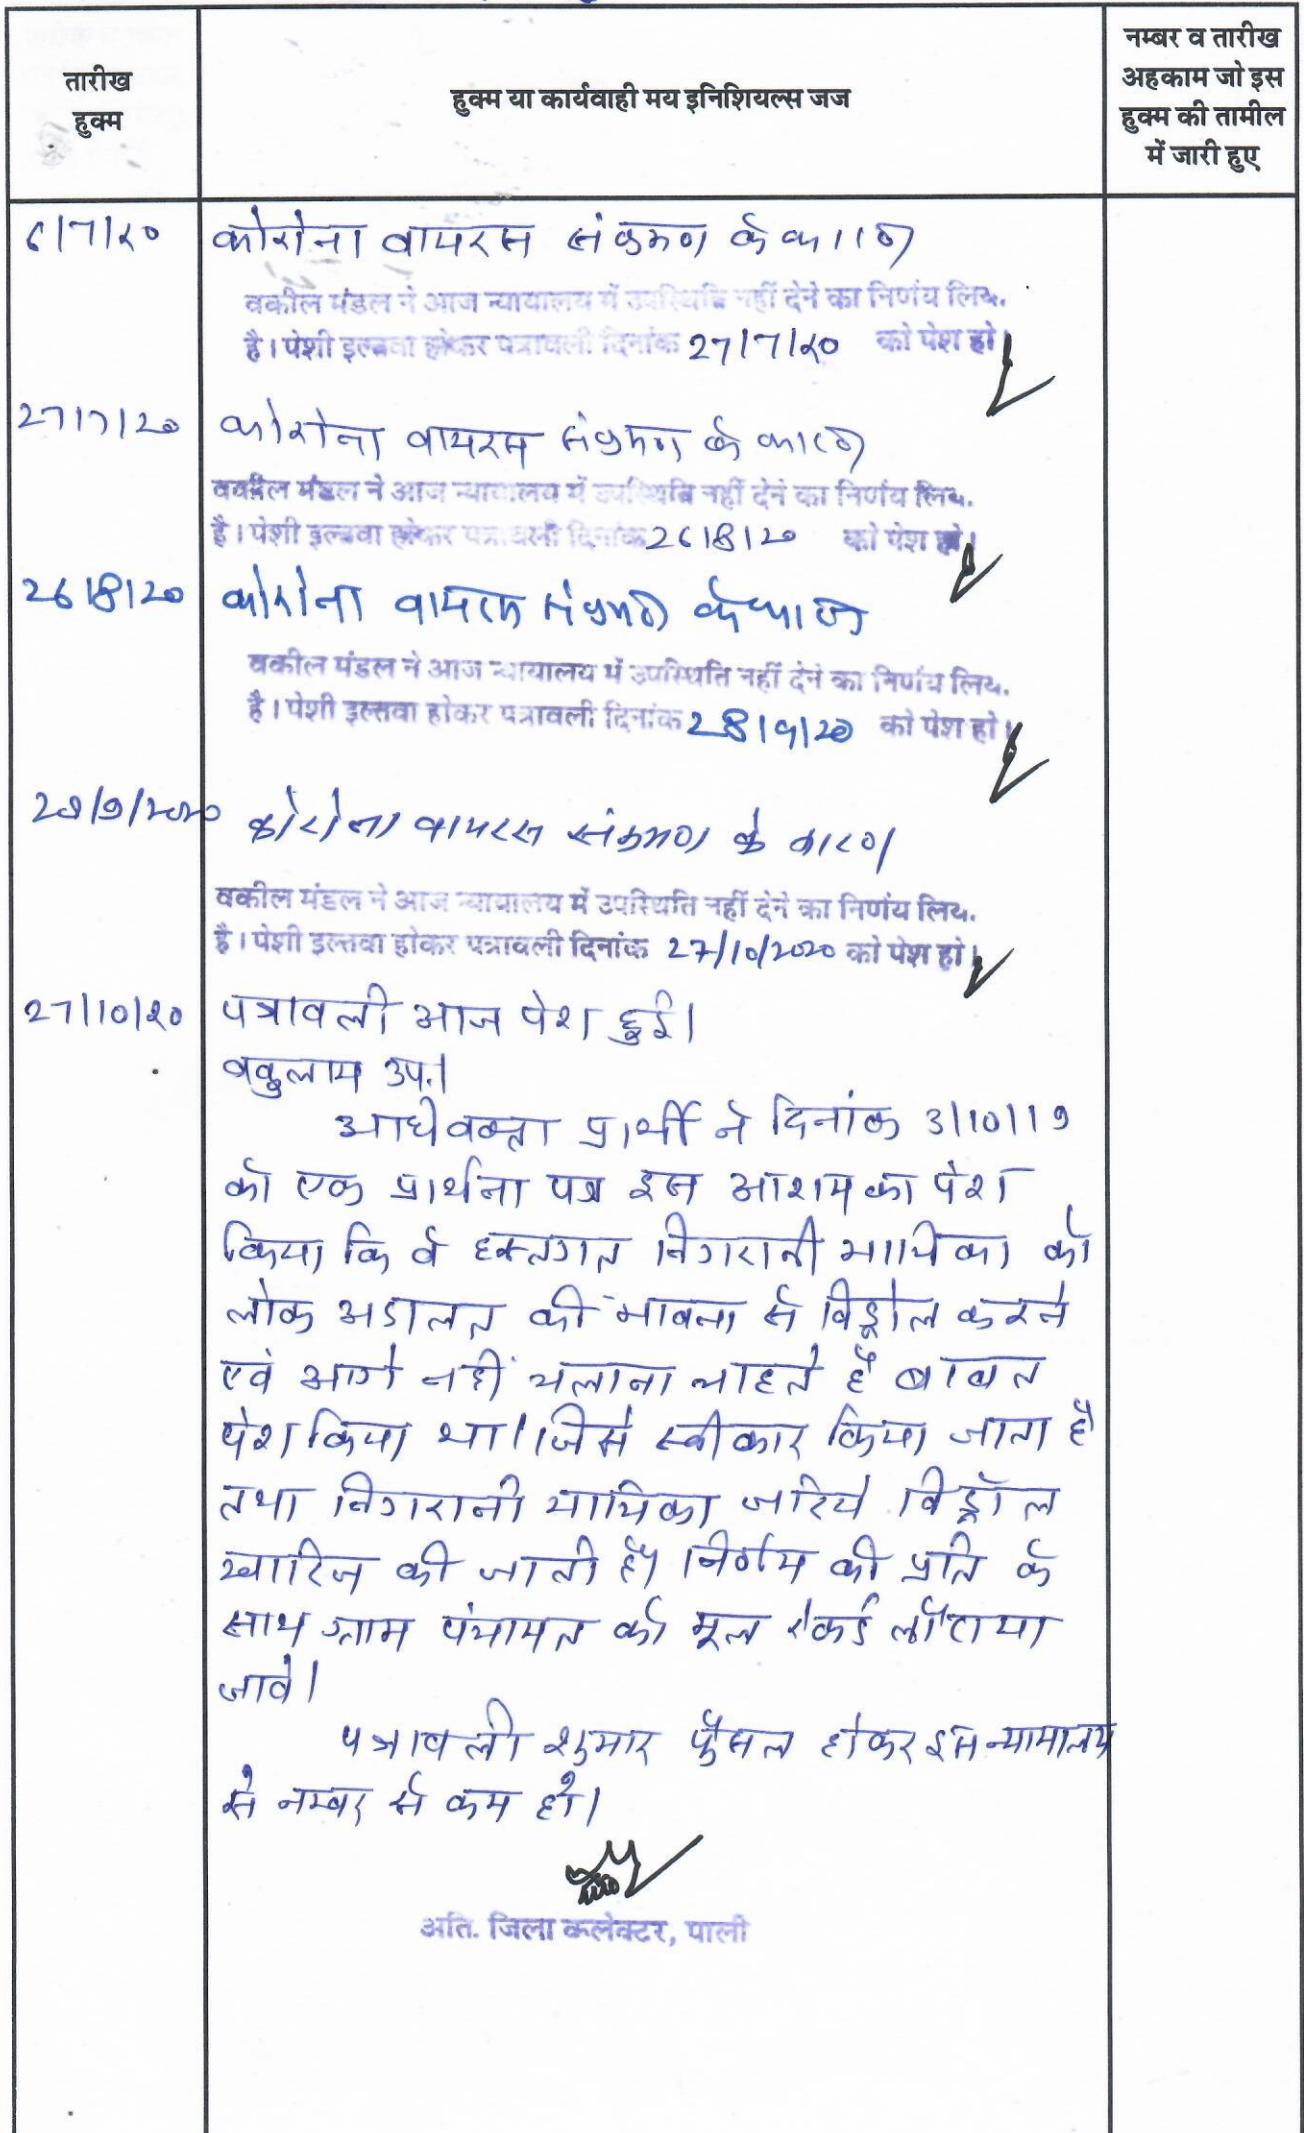 तारीख
हुक्म
हुक्म या कार्यवाही मय इनिशियल्स जज
नम्बर व तारीख
अहकाम जो इस
हुक्म की तामील
में जारी हुए
6/7/20 कोरोना वायरस संक्रमण के कारण
वकील मंडल ने आज न्यायालय में उपस्थिति नहीं देने का निर्णय लिय.
है। पेशी इल्तवा होकर पत्रावली दिनांक 27/7/20 को पेश हो।
27/7/20 कोरोना वायरस संक्रमण के कारण
वकील मंडल ने आज न्यायालय में उपस्थिति नहीं देने का निर्णय लिय.
है। पेशी इल्तवा होकर पत्रावली दिनांक 26/8/20 को पेश हो।
26/8/20 कोरोना वायरस संक्रमण के कारण
वकील मंडल ने आज न्यायालय में उपस्थिति नहीं देने का निर्णय लिय.
है। पेशी इल्तवा होकर पत्रावली दिनांक 28/9/20 को पेश हो।
28/9/2020 कोरोना वायरस संक्रमण के कारण
वकील मंडल ने आज न्यायालय में उपस्थिति नहीं देने का निर्णय लिय.
है। पेशी इल्तवा होकर पत्रावली दिनांक 27/10/2020 को पेश हो।
27/10/20 पत्रावली आज पेश हुई।
वकुलाय उप.।
अधिवक्ता प्रार्थी ने दिनांक 3/10/19
को एक प्रार्थना पत्र इस आशय का पेश
किया कि वे हस्तगत निगरानी याचिका को
लोक अदालत की भावना से विड्रोल करने
एवं आगे नहीं चलाना चाहते है बाबत
पेश किया था। जिसे स्वीकार किया जाता है
तथा निगरानी याचिका जरिये विड्रॉल
खारिज की जाती है। निर्णय की प्रति के
साथ ग्राम पंचायत को मूल रेकर्ड लौटाया
जावे।
पत्रावली शुमार फैसल होकर इस न्यायालय
से नम्बर से कम हो।
अति. जिला कलेक्टर, पाली